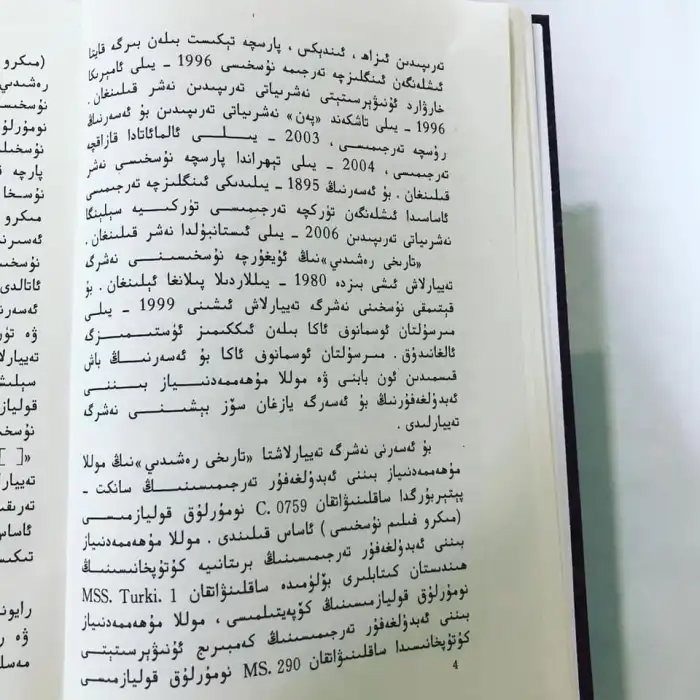 تەرىپىدىن ئىزاھ، ئىندېكس، پارسچە تېكىست بىلەن بىرگە قايتا
ئىشلەنگەن ئىنگلىزچە تەرجىمە نۇسخىسى 1996 - يىلى ئامېرىكا
خارۋارد ئۇنىۋېرسىتېتى نەشرىياتى تەرىپىدىن نەشر قىلىنغان.
1996 - يىلى تاشكەند «پەن» نەشرىياتى تەرىپىدىن بۇ ئەسەرنىڭ
رۇسچە تەرجىمىسى، 2003 - يىلى ئالمائاتادا قازاقچە
تەرجىمىسى، 2004 - يىلى تېھراندا پارسچە نۇسخىسى نەشر
قىلىنغان. بۇ ئەسەرنىڭ 1895 - يىلىدىكى ئىنگلىزچە تەرجىمىسى
ئاساسىدا ئىشلەنگەن تۈركچە تەرجىمىسى تۈركىيە سېلېنگا
نەشرىياتى تەرىپىدىن 2006 - يىلى ئىستانبۇلدا نەشر قىلىنغان.
«تارىخى رەشىدىي»نىڭ ئۇيغۇرچە نۇسخىسىنى نەشرگە
تەييارلاش ئىشى بىزدە 1980 - يىللاردىلا پىلانغا ئېلىنغان. بۇ
قېتىمقى نۇسخىنى نەشرگە تەييارلاش ئىشىنى 1999 - يىلى
مىرسۇلتان ئوسمانوف ئاكا بىلەن ئىككىمىز ئۈستىمىزگە
ئالغانىدۇق. مىرسۇلتان ئوسمانوف ئاكا بۇ ئەسەرنىڭ باش
قىسمىدىن ئون بابنى ۋە موللا مۇھەممەدنىياز بىننى
ئەبدۇلغەفۇرنىڭ بۇ ئەسەرگە يازغان سۆز بېشىنى نەشرگە
تەييارلىدى.
بۇ ئەسەرنى نەشرگە تەييارلاشتا «تارىخى رەشىدىي»نىڭ موللا
مۇھەممەدنىياز بىننى ئەبدۇلغەفۇر تەرجىمىسىنىڭ سانكت -
پېتېربۇرگدا ساقلىنىۋاتقان C. 0759 نومۇرلۇق قوليازمىسى
(مىكرو فىلىم نۇسخىسى) ئاساس قىلىندى. موللا مۇھەممەدنىياز
بىننى ئەبدۇلغەفۇر تەرجىمىسىنىڭ برىتانىيە كۇتۇپخانىسىنىڭ
ھىندىستان كىتابلىرى بۆلۈمىدە ساقلىنىۋاتقان MSS. Turki. 1
نومۇرلۇق قوليازمىسىنىڭ كۆپەيتىلمىسى، موللا مۇھەممەدنىياز
بىننى ئەبدۇلغەفۇر تەرجىمىسىنىڭ كەمبىرىج ئۇنىۋېرسىتېتى
كۇتۇپخانىسىدا ساقلىنىۋاتقان MS. 290 نومۇرلۇق قوليازمىسى
4